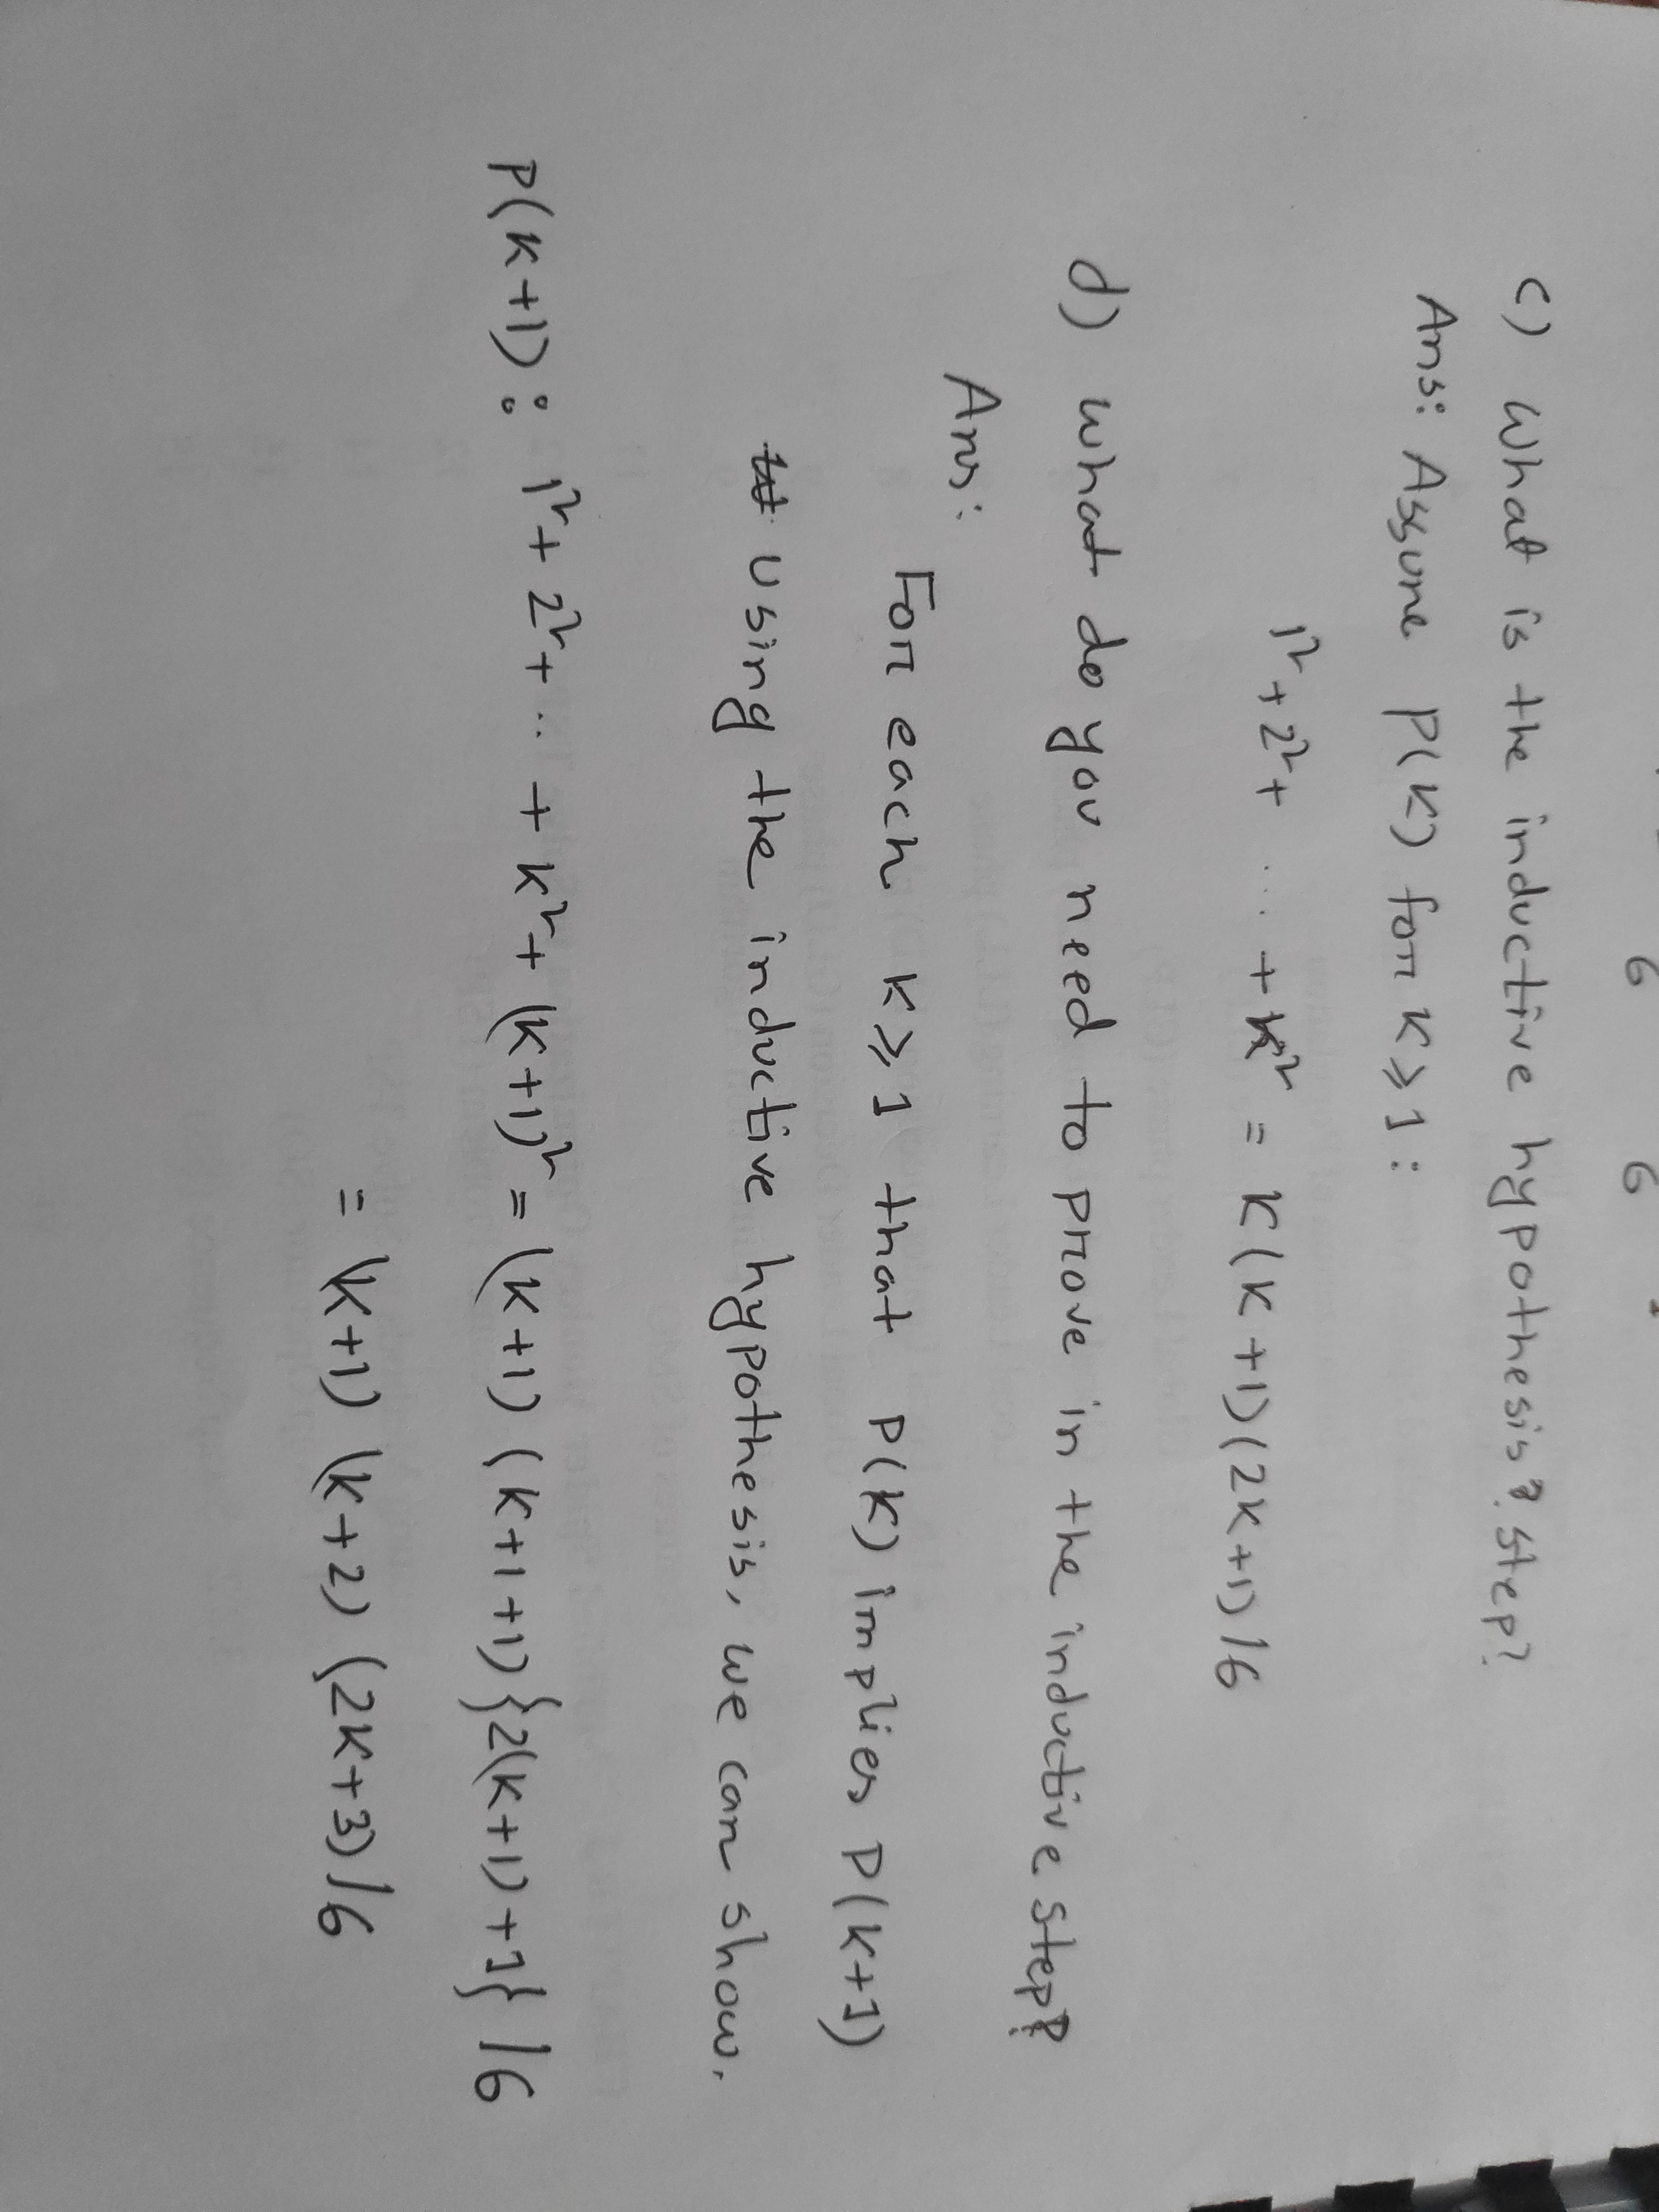 6 6
c) What is the inductive hypothesis? step?
Ans: Assume P(K) for K ≥ 1 :
1² + 2² + ... + K² = K(K+1)(2K+1)/6
d) What do you need to prove in the inductive step?
Ans:
For each K ≥ 1 that P(K) implies P(K+1)
Using the inductive hypothesis, we can show,
P(K+1) : 1² + 2² + ... + K² + (K+1)² = (K+1) (K+1+1) {2(K+1)+1} /6
= (K+1) (K+2) (2K+3)/6